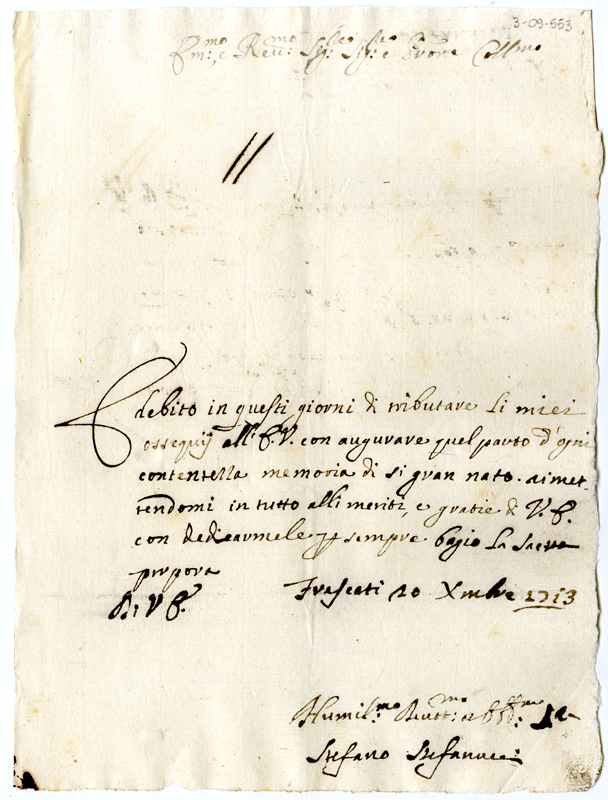 3-09-553
Em:mo e Rev:mo Sig:re Sig:re e Prone Coll:mo
È debito in questi giorni di tributare li miei
ossequij all'E.V. con augurare quel parto d'ogni
contentezza memoria di si gran nato. rimet-
tendomi in tutto alli meriti, e gratie di V.E.
con dedicarmele per sempre bagio la sacra
porpora
Di V E.
Frascati 20 Xmbre 1713
Humil:mo Devot:mo et
Stefano Stefanucci